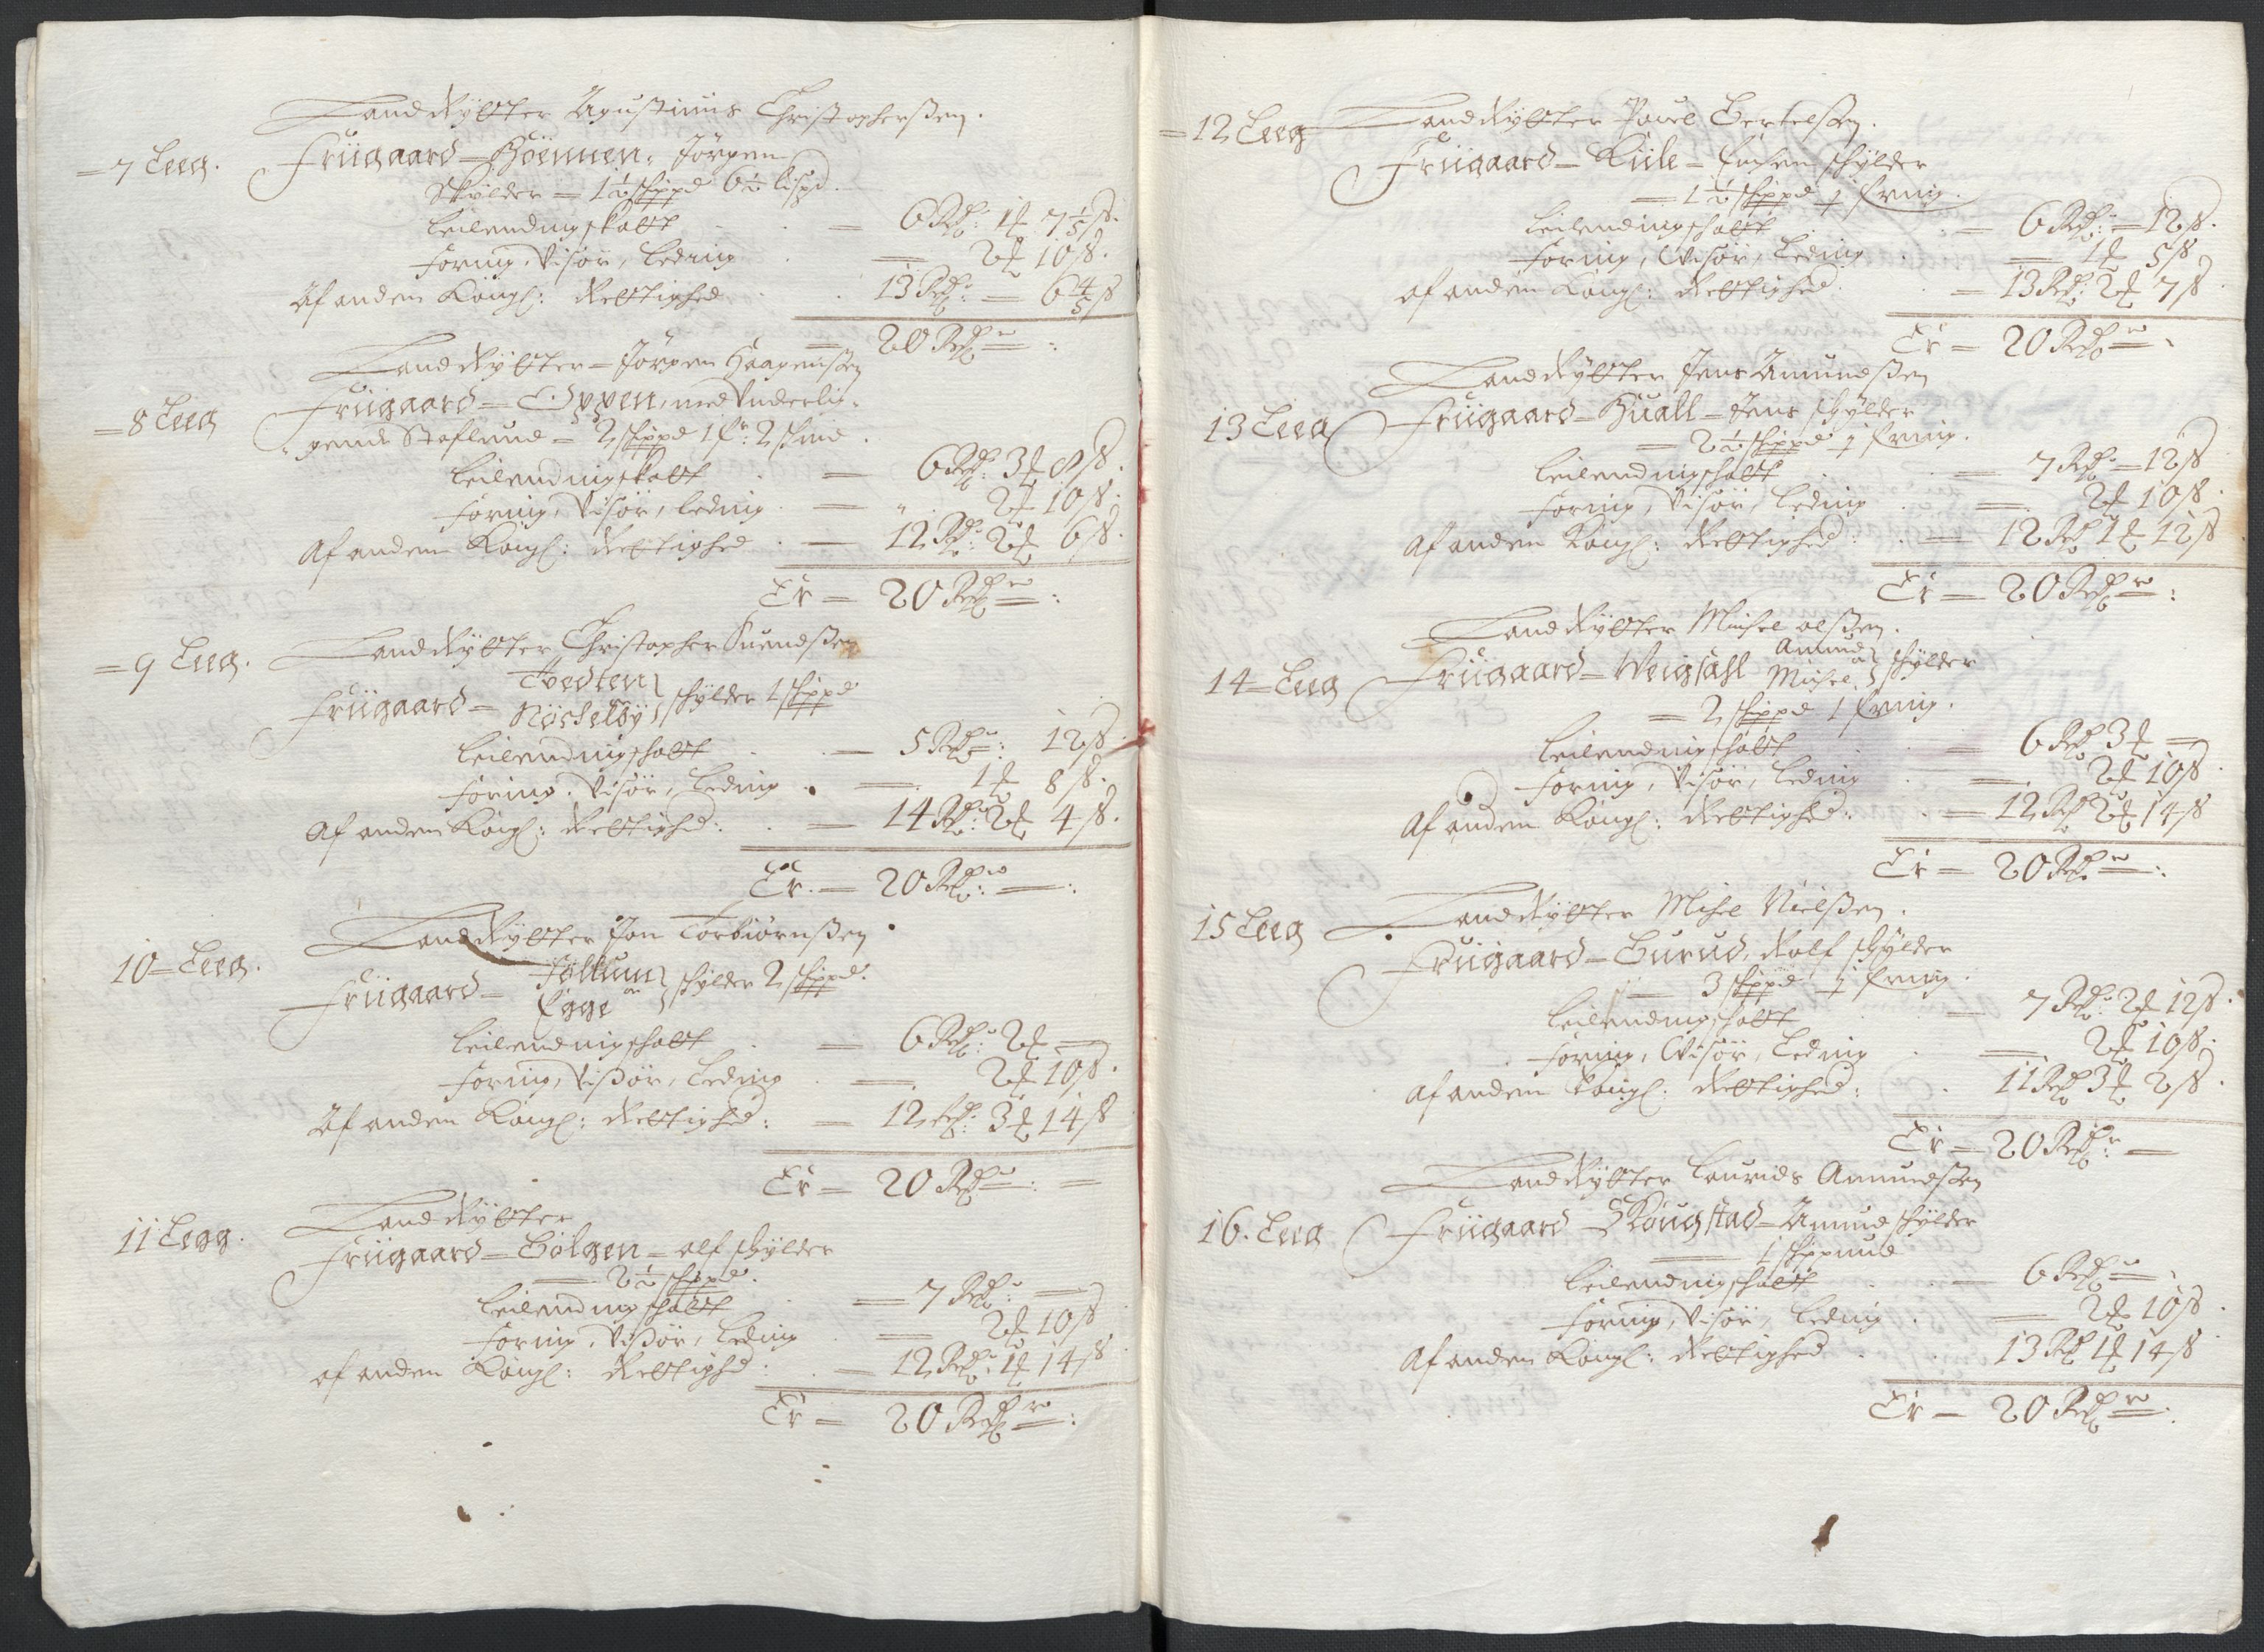 Land Rytter Agustinus Christophersen.
=7 Leeg. Friigaard = Höennen, Jörgen
Skylder = 1½ skippd 6½ lispd.
Leilendingskatt = 6 Rdr: 1 ort 7 1/5 s.
Foring, Visör, Leding = 2 ort 10 s.
Af anden Kongl: Rettighed 13 Rdr: = 6 4/5 s
= 20 Rdr =:
Land Rytter = Jörgen Haagensen
=8 Leeg Friigaard = Oppen, med Underlig-
gende Staflund = 2 skippd 1 fr: 2 skind.
Leilendingskatt = 6 Rdr: 3 ort 8 s.
Foring, Visör, Leding = " 2 ort 10 s.
Af anden Kongl: Rettighed = 12 Rdr: 2 ort 6 s.
Er = 20 Rdr =:
=9 Leeg. Land Rytter Christopher Suendsen
Tvedten
Friigaard = Nöckleby skylder 1 skippd
Leilendingskatt = 5 Rdr: 12 s
Foring, Visör, Leding = 1 ort 8 s.
Af anden Kongl: Rettighed: = 14 Rdr: 2 ort 4 s.
Er. = 20 Rdr: =:
Land Rytter Jon Torbiörnsen
10 = Leeg. Friigaard = Follum
och Egge skylder 2 skippd.
Leilendingskatt = 6 Rdr: 2 ort =
Foring, Visör, Leding = 2 ort 10 s.
Af anden Kongl: Rettighed: = 12 Rdr: 3 ort 14 s
Er = 20 Rdr =: =
Land Rytter
11 Legg. Friigaard = Bölgen = olf skylder
= 2½ skippd.
Leilendingskatt = 7 Rdr: =
Foring, Visör, Leding = 2 ort 10 s
af anden Kongl: Rettighed: = 12 Rdr: 1 ort 14 s
Er = 20 Rdr =:
=12 Leeg Land Rytter Pouel Bertelsen.
Friigaard = Kiile = skylder
= 1½ skippd ½ fring.
Leilendingskatt = 6 Rdr: = 12 s.
Foring, Visör, Leding = 1 ort 5 s
af anden Kongl: Rettighed: = 13 Rdr: 2 ort 7 s
Er = 20 Rdr =
Land Rytter Jens Amundsen
13 Leeg Friigaard = Huall = Jens skylder
= 2½ skippd ½ fring.
Leilendingskatt = 7 Rdr = 12 s
Foring, Visör, Leding = 2 ort 10 s.
Af anden Kongl: Rettighed: = 12 Rdr 1 ort 12 s
Er = 20 Rdr =:
Land Rytter Michel olsen.
14 = Leeg Friigaard = Weigsahl Amund
och Michel skylder
= 2 skippd 1 fring.
Leilendingskatt = 6 Rdr 3 ort =
Foring, Visör, Leding = 2 ort 10 s
Af anden Kongl: Rettighed: = 12 Rdr 2 ort 14 s
Er = 20 Rdr =:
15 Leeg Land Rytter Michel Nielsen.
Friigaard = Burud, Rolf skylder
= 3 skippd ½ fring.
Leilendingskatt = 7 Rdr: 2 ort 12 s.
Foring, Visör, Leding = 2 ort 10 s.
af anden Kongl: Rettighed: 11 Rdr 3 ort 2 s.
Er = 20 Rdr: =
Land Rytter Laurids Amundsen
16. Leeg Friigaard = Skougstad = Amund skylder
= 1 skippund
Leilendingskatt = 6 Rdr =
Foring, Visör, Leding = 2 ort 10 s.
Af anden Kongl: Rettighed 13 Rdr 1 ort 14 s
Er = 20 Rdr =: